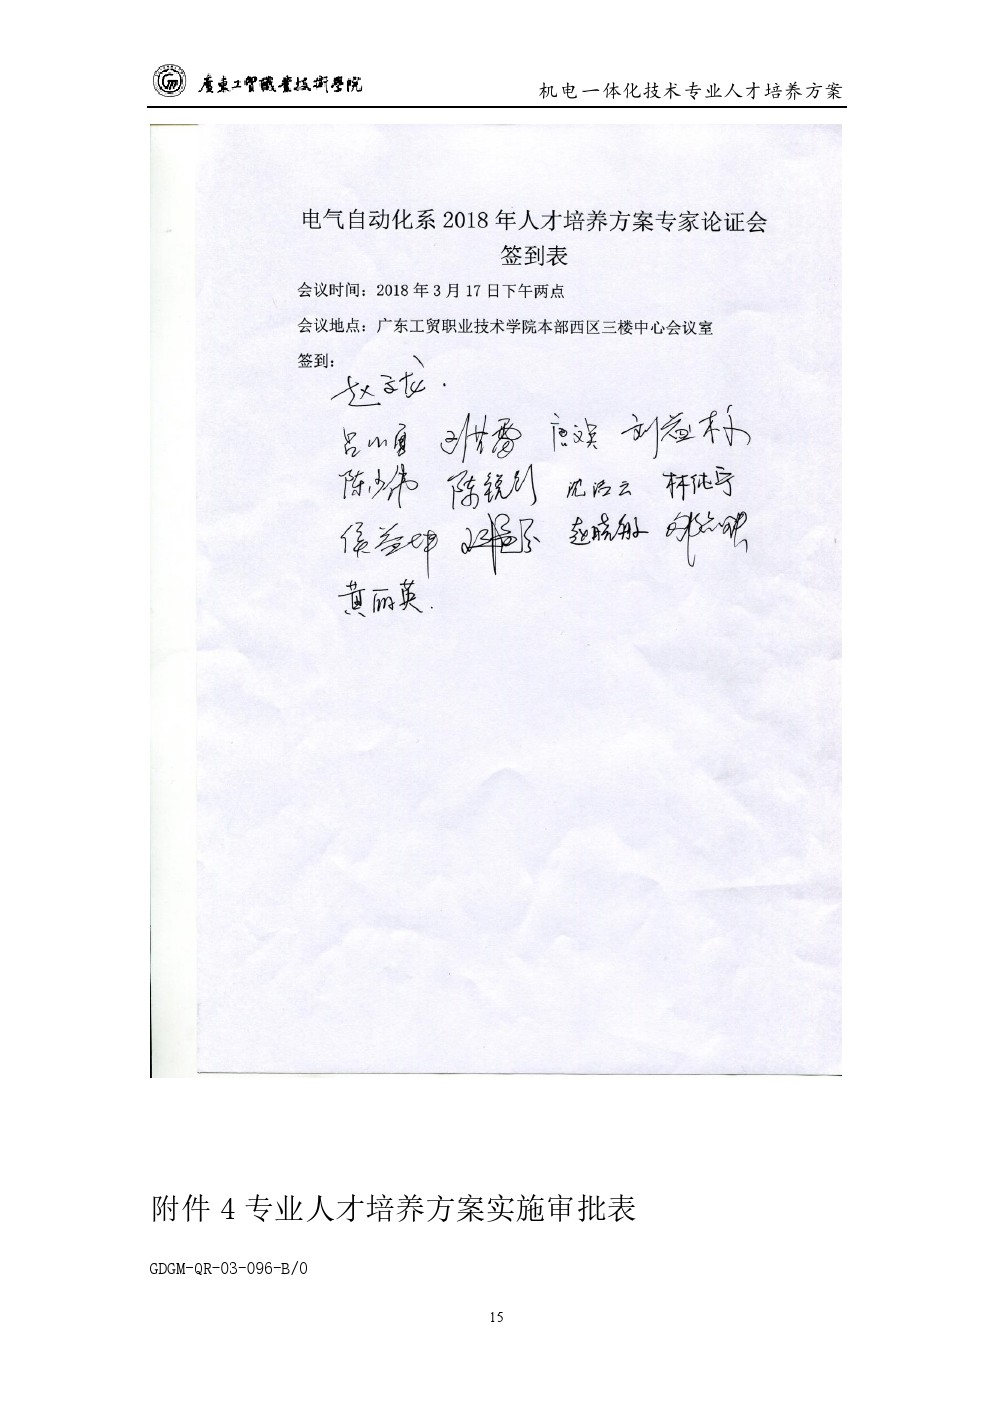 廣東工贸職業技術學院
机电一体化技术专业人才培养方案
电气自动化系 2018 年人才培养方案专家论证会
签到表
会议时间：2018 年 3 月 17 日下午两点
会议地点：广东工贸职业技术学院本部西区三楼中心会议室
签到：
赵子龙.
吕小勇 唐文 刘益标
陈少伟 陈锐利 沈洁云 林纯宁
侯益坤 赵晓敏
黄丽英.
附件 4 专业人才培养方案实施审批表
GDGM-QR-03-096-B/0
15